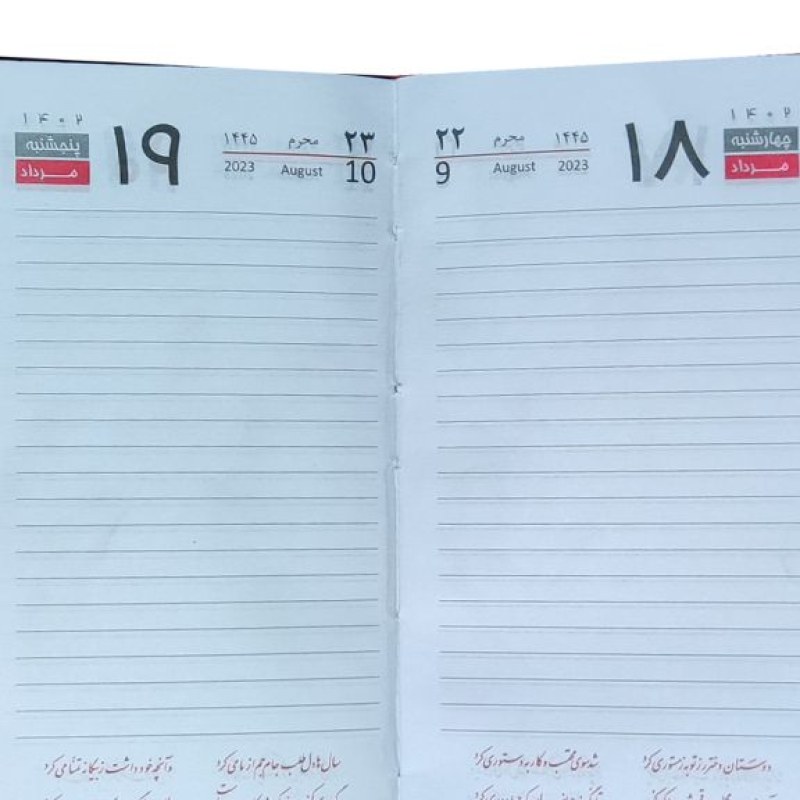 ۱۴۰۲
چهارشنبه
مرداد
۱۸
۱۴۴۵ محرم ۲۲
2023 August 9
دوستان دختر رز توبه ز مستوری کرد شد سوی محتسب و کار به دستوری کرد
۱۴۰۲
پنجشنبه
مرداد
۱۹
۲۳ محرم ۱۴۴۵
10 August 2023
سال‌ها دل طلب جام جم از ما می‌کرد وآنچه خود داشت ز بیگانه تمنا می‌کرد